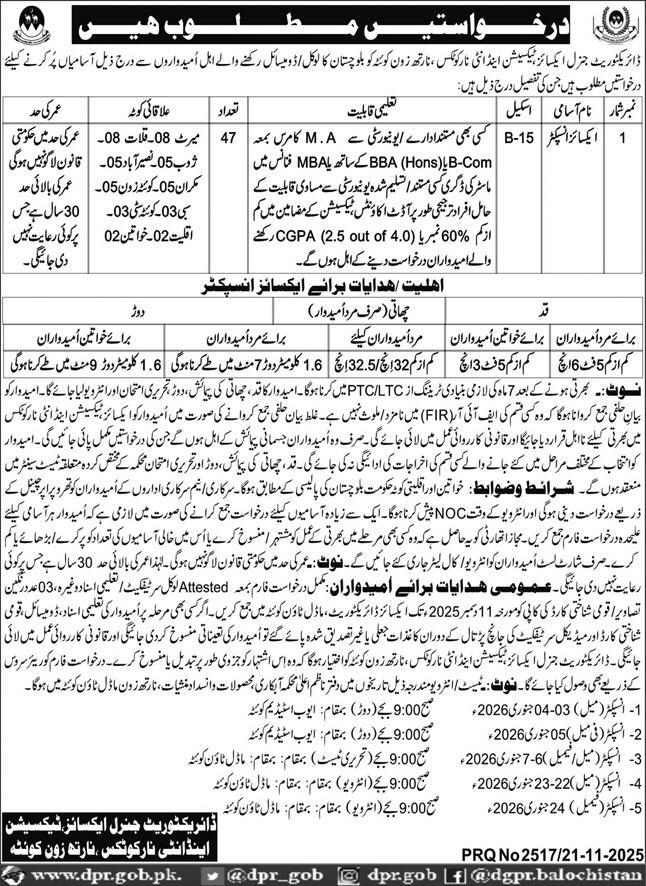 درخواستیں مطلوب ہیں
ڈائریکٹوریٹ جنرل ایکسائز، ٹیکسیشن اینڈ انٹی نارکوٹکس، نارتھ زون کوئٹہ کو بلوچستان کا لوکل / ڈومیسائل رکھنے والے اہل اُمیدواروں سے درج ذیل آسامیاں پُر کرنے کیلئے
درخواستیں مطلوب ہیں جن کی تفصیل درج ذیل ہیں:
نمبر شمار نام آسامی اسکیل تعلیمی قابلیت تعداد علاقائی کوٹہ عمر کی حد
1 ایکسائز انسپکٹر B-15 کسی بھی مستند ادارے / یونیورسٹی سے M.A کامرس بمعہ 47 میرٹ 08۔ قلات 08۔ عمر کی حد میں حکومتی
B-Com یا BBA (Hons) کے ساتھ یا MBA فنانس میں ژوب 05۔ نصیر آباد 05۔ قانون لاگو نہیں ہوگی
ماسٹر کی ڈگری کسی مستند / تسلیم شدہ یونیورسٹی سے مساوی قابلیت کے مکران 05۔ کوئٹہ زون 05۔ عمر کی بالائی حد
حامل افراد ترجیحی طور پر آڈٹ اکاؤنٹس، ٹیکسیشن کے مضامین میں کم سبی 03۔ کوئٹہ سٹی 03۔ 30 سال ہے جس
از کم 60% نمبر یا CGPA (2.5 out of 4.0) رکھنے اقلیت 02۔ خواتین 02 پر کوئی رعایت نہیں
والے امیدواران درخواست دینے کے اہل ہوں گے۔ دی جائیگی۔
اہلیت / ہدایات برائے ایکسائز انسپکٹر
قد چھاتی (صرف مرد امیدوار) دوڑ
برائے مرد امیدواران برائے خواتین امیدواران مرد امیدواران کیلئے برائے مرد امیدواران برائے خواتین امیدواران
کم از کم 5 فٹ 6 انچ کم از کم 5 فٹ 3 انچ کم از کم 32 انچ / 32.5 انچ 1.6 کلومیٹر دوڑ 7 منٹ میں طے کرنا ہوگی 1.6 کلومیٹر دوڑ 9 منٹ میں طے کرنا ہوگی
نوٹ:۔ بھرتی ہونے کے بعد 7 ماہ کی لازمی بنیادی ٹریننگ از PTC/LTC میں کرنا ہوگا۔ امیدوار کا قد، چھاتی کی پیمائش، دوڑ تحریری امتحان اور انٹرویو لیا جائے گا۔ امیدوار کو
بیان حلفی جمع کروانا ہوگا کہ وہ کسی قسم کی ایف آئی آر (FIR) میں نامزد / ملوث نہیں ہے۔ غلط بیان حلفی جمع کروانے کی صورت میں امیدوار کو ایکسائز ٹیکسیشن اینڈ انٹی نارکوٹکس
میں بھرتی کیلئے نااہل قرار دیا جائیگا اور قانونی کارروائی عمل میں لائی جائے گی۔ صرف وہ امیدواران جسمانی پیمائش کے اہل ہوں گے جن کی درخواستیں مکمل پائی جائیں گی۔ امیدوار
کو انتخاب کے مختلف مراحل میں کئے جانے والے کسی قسم کی اخراجات کی ادائیگی نہ کی جائے گی۔ قد، چھاتی کی پیمائش، دوڑ اور تحریری امتحان محکمہ کے مختص کردہ متعلقہ ٹیسٹ سینٹر میں
منعقد ہوں گے۔ شرائط و ضوابط: خواتین اور اقلیتی کوٹہ حکومت بلوچستان کی پالیسی کے مطابق ہوگا۔ سرکاری / نیم سرکاری اداروں کے امیدواران کو تھرو پراپر چینل کے
ذریعے درخواست دینی ہوگی اور انٹرویو کے وقت NOC پیش کرنا ہوگا۔ ایک سے زیادہ آسامیوں کیلئے درخواست جمع کرنے کی صورت میں لازمی ہے کہ امیدوار ہر آسامی کیلئے
علیحدہ درخواست فارم جمع کریں۔ مجاز اتھارٹی کو یہ حاصل ہے کہ وہ کسی بھی مرحلے میں بھرتی کے عمل کو مشتہر / منسوخ کرے یا اس میں خالی آسامیوں کی تعداد کو پر کرے / بڑھائے یا کم
کرے۔ صرف شارٹ لسٹ امیدواران کو انٹرویو / کال لیٹر جاری کئے جائیں گے۔ نوٹ:۔ عمر کی حد میں حکومتی قانون لاگو نہیں ہوگی۔ لہٰذا عمر کی بالائی حد 30 سال ہے جس پر کوئی
رعایت نہیں دی جائیگی۔ عمومی ہدایات برائے اُمیدواران: مکمل درخواست فارم بمعہ Attested لوکل سرٹیفکیٹ / تعلیمی اسناد وغیرہ، 03 عدد رنگین
تصاویر / قومی شناختی کارڈ کی کاپی کو مورخہ 11 دسمبر 2025ء تک ایکسائز ڈائریکٹوریٹ، ماڈل ٹاؤن کوئٹہ میں جمع کریں۔ اگر کسی بھی مرحلہ پر امیدوار کی تعلیمی اسناد، ڈومیسائل، قومی
شناختی کارڈ اور میڈیکل سرٹیفکیٹ کی جانچ پڑتال کے دوران کاغذات جعلی یا غیر تصدیق شدہ پائے گئے تو امیدوار کی تعیناتی منسوخ کر دی جائیگی اور قانونی کارروائی عمل میں لائی
جائیگی۔ ڈائریکٹوریٹ جنرل ایکسائز ٹیکسیشن اینڈ انٹی نارکوٹکس، نارتھ زون کوئٹہ کو اختیار ہوگا کہ وہ اس اشتہار کو جزوی طور پر تبدیل یا منسوخ کرے۔ درخواست فارم کوریئر سروس
کے ذریعے بھی وصول کیا جائے گا۔ نوٹ:۔ ٹیسٹ / انٹرویو مندرجہ ذیل تاریخوں میں دفتر ناظم اعلیٰ محکمہ آبکاری محصولات و انسداد منشیات، نارتھ زون ماڈل ٹاؤن کوئٹہ میں ہوگا۔
1- انسپکٹر (میل) 03-04 جنوری 2026ء صبح 9:00 بجے (دوڑ) بمقام: ایوب اسٹیڈیم کوئٹہ
2- انسپکٹر (فی میل) 05 جنوری 2026ء صبح 9:00 بجے (دوڑ) بمقام: ایوب اسٹیڈیم کوئٹہ
3- انسپکٹر (میل / فیمیل) 6-7 جنوری 2026ء صبح 9:00 بجے (تحریری ٹیسٹ) بمقام: بمقام: ماڈل ٹاؤن کوئٹہ
4- انسپکٹر (میل) 22-23 جنوری 2026ء صبح 9:00 بجے (انٹرویو) بمقام: ماڈل ٹاؤن کوئٹہ
5- انسپکٹر (فیمیل) 24 جنوری 2026ء صبح 9:00 بجے (انٹرویو) بمقام: بمقام: ماڈل ٹاؤن کوئٹہ
ڈائریکٹوریٹ جنرل ایکسائز، ٹیکسیشن
اینڈ انٹی نارکوٹکس، نارتھ زون کوئٹہ
PRQ No 2517/21-11-2025
www.dpr.gob.pk. @dpr_gob dpr.gob @dgpr.balochistan